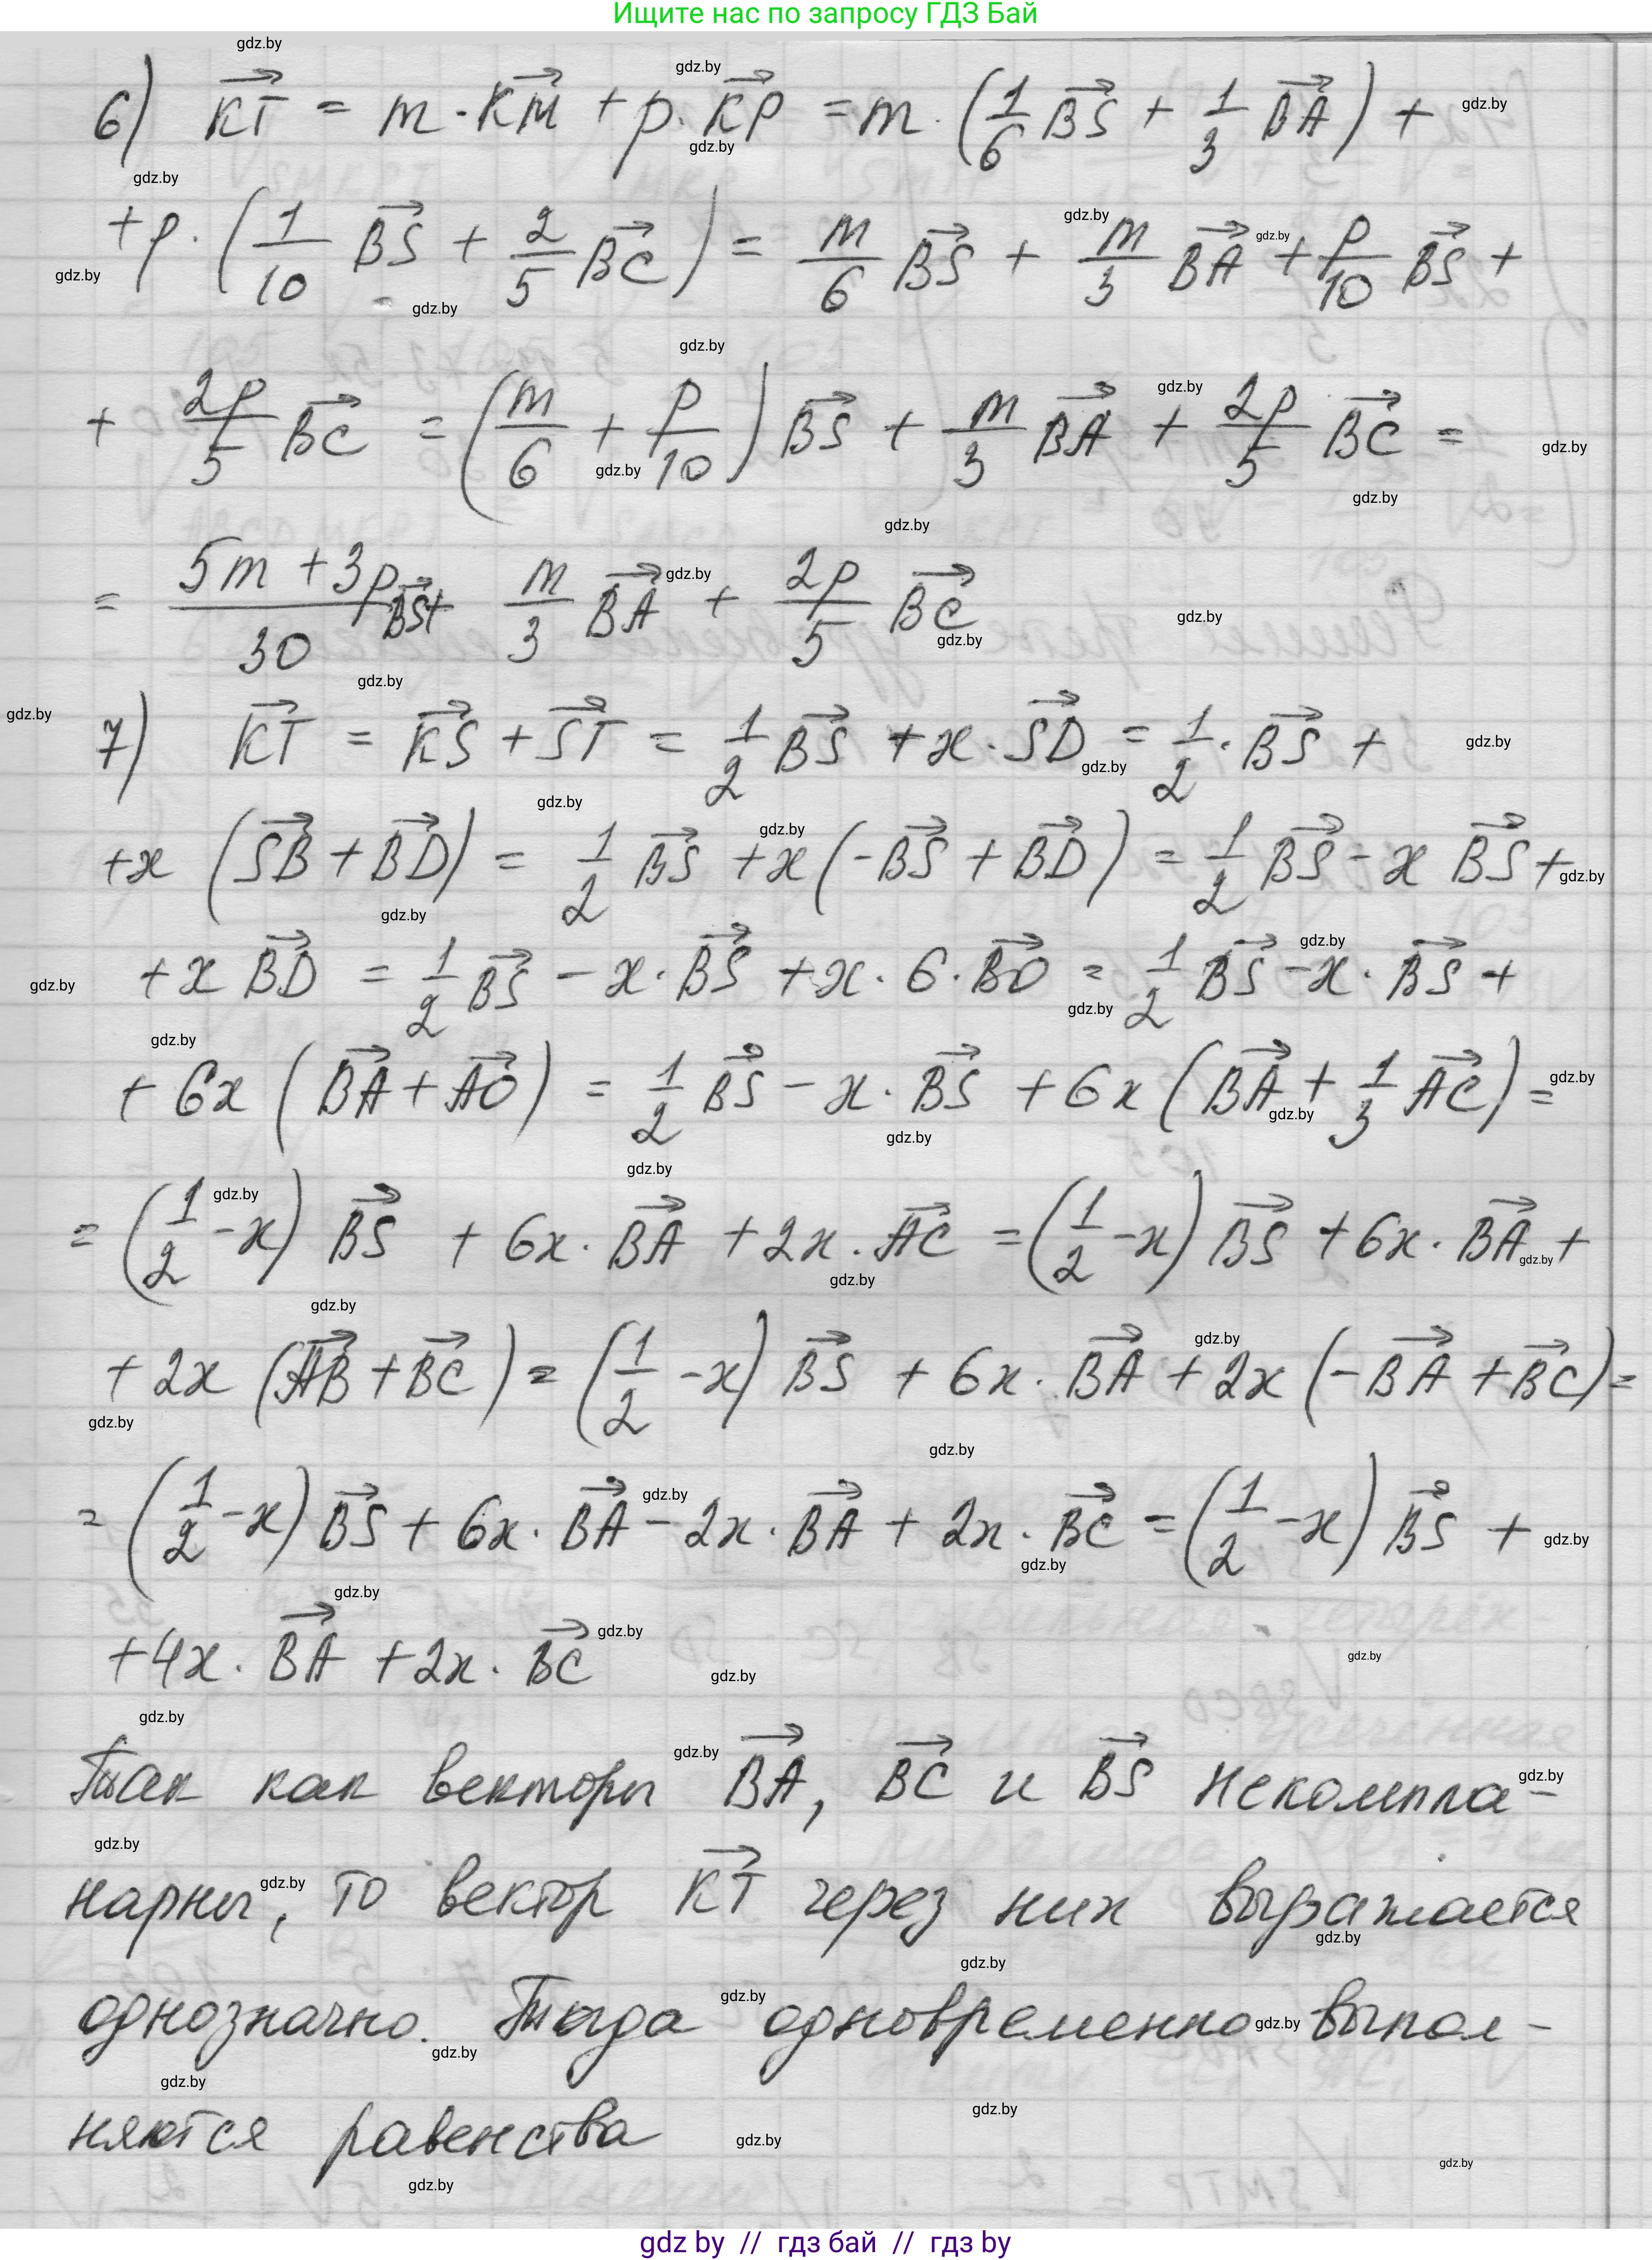 Ищите нас по запросу ГДЗ Бай
6) KT = m · KM + p · KP = m · (1/6 BS + 1/3 BA) +
+ p · (1/10 BS + 2/5 BC) = m/6 BS + m/3 BA + p/10 BS +
+ 2p/5 BC = (m/6 + p/10) BS + m/3 BA + 2p/5 BC =
= (5m + 3p)/30 BS + m/3 BA + 2p/5 BC
7) KT = KS + ST = 1/2 BS + x · SD = 1/2 · BS +
+ x (SB + BD) = 1/2 BS + x (-BS + BD) = 1/2 BS - x BS +
+ x BD = 1/2 BS - x · BS + x · 6 · BO = 1/2 BS - x · BS +
+ 6x (BA + AO) = 1/2 BS - x · BS + 6x (BA + 1/3 AC) =
= (1/2 - x) BS + 6x · BA + 2x · AC = (1/2 - x) BS + 6x · BA +
+ 2x (AB + BC) = (1/2 - x) BS + 6x · BA + 2x (-BA + BC) =
= (1/2 - x) BS + 6x · BA - 2x · BA + 2x · BC = (1/2 - x) BS +
+ 4x · BA + 2x · BC
Так как векторы BA, BC и BS некомпла-
нарны, то вектор KT через них выражается
однозначно. Тогда одновременно выпол-
няются равенства
gdz by // гдз бай // гдз by